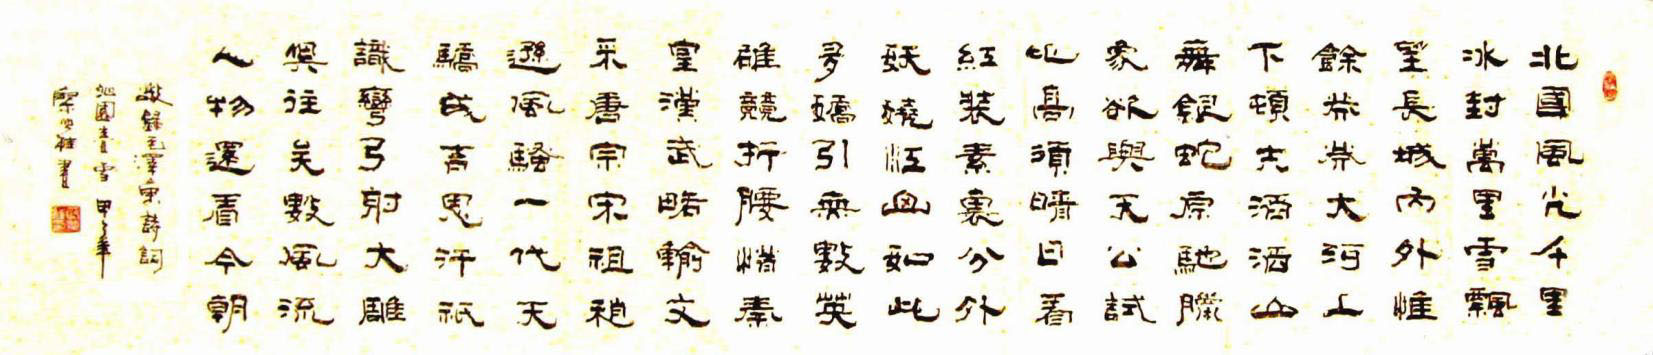 北國風光千里
冰封萬里雪飄
望長城內外惟
餘莽莽大河上
下頓失滔滔山
舞銀蛇原馳臘
象欲與天公試
比高須晴日看
紅裝素裹分外
妖嬈江山如此
多嬌引無數英
雄競折腰惜秦
皇漢武略輸文
采唐宗宋祖稍
遜風騷一代天
驕成吉思汗祇
識彎弓射大雕
俱往矣數風流
人物還看今朝
敬錄毛澤東詩詞
沁園春雪 甲午年
書